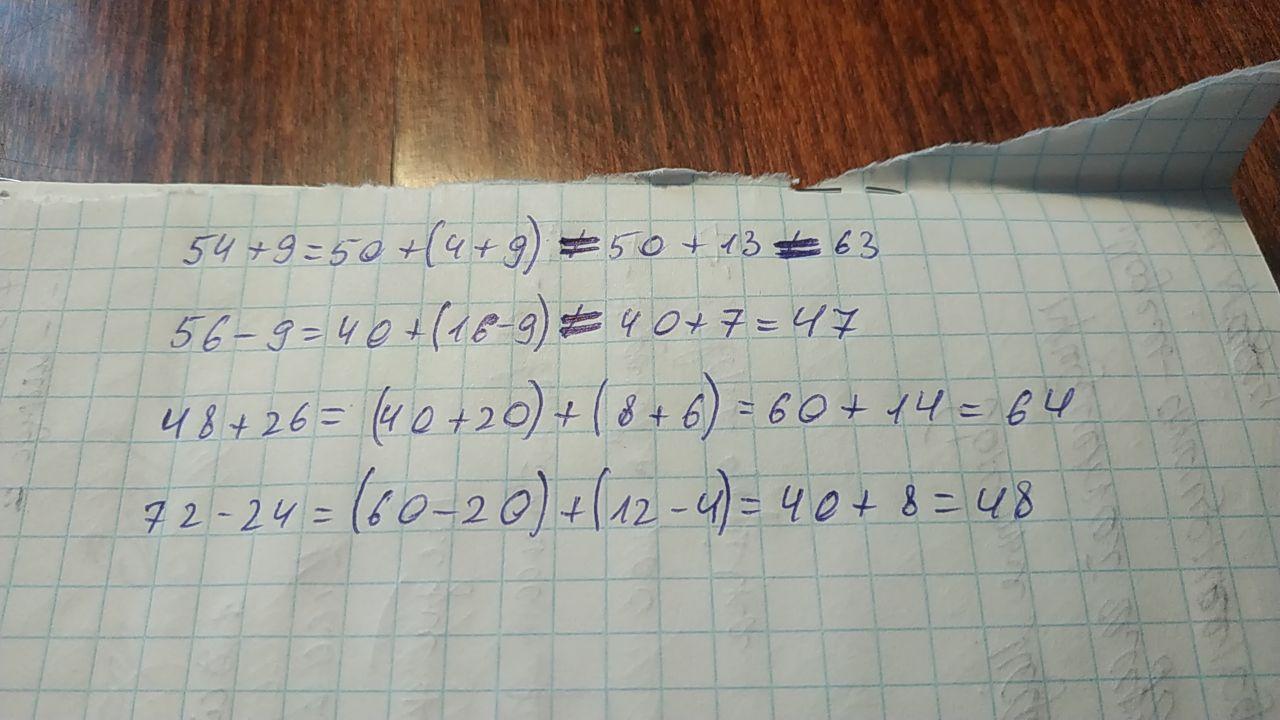 54+9=50+(4+9)=50+13=63
56-9=40+(16-9)=40+7=47
48+26=(40+20)+(8+6)=60+14=64
72-24=(60-20)+(12-4)=40+8=48